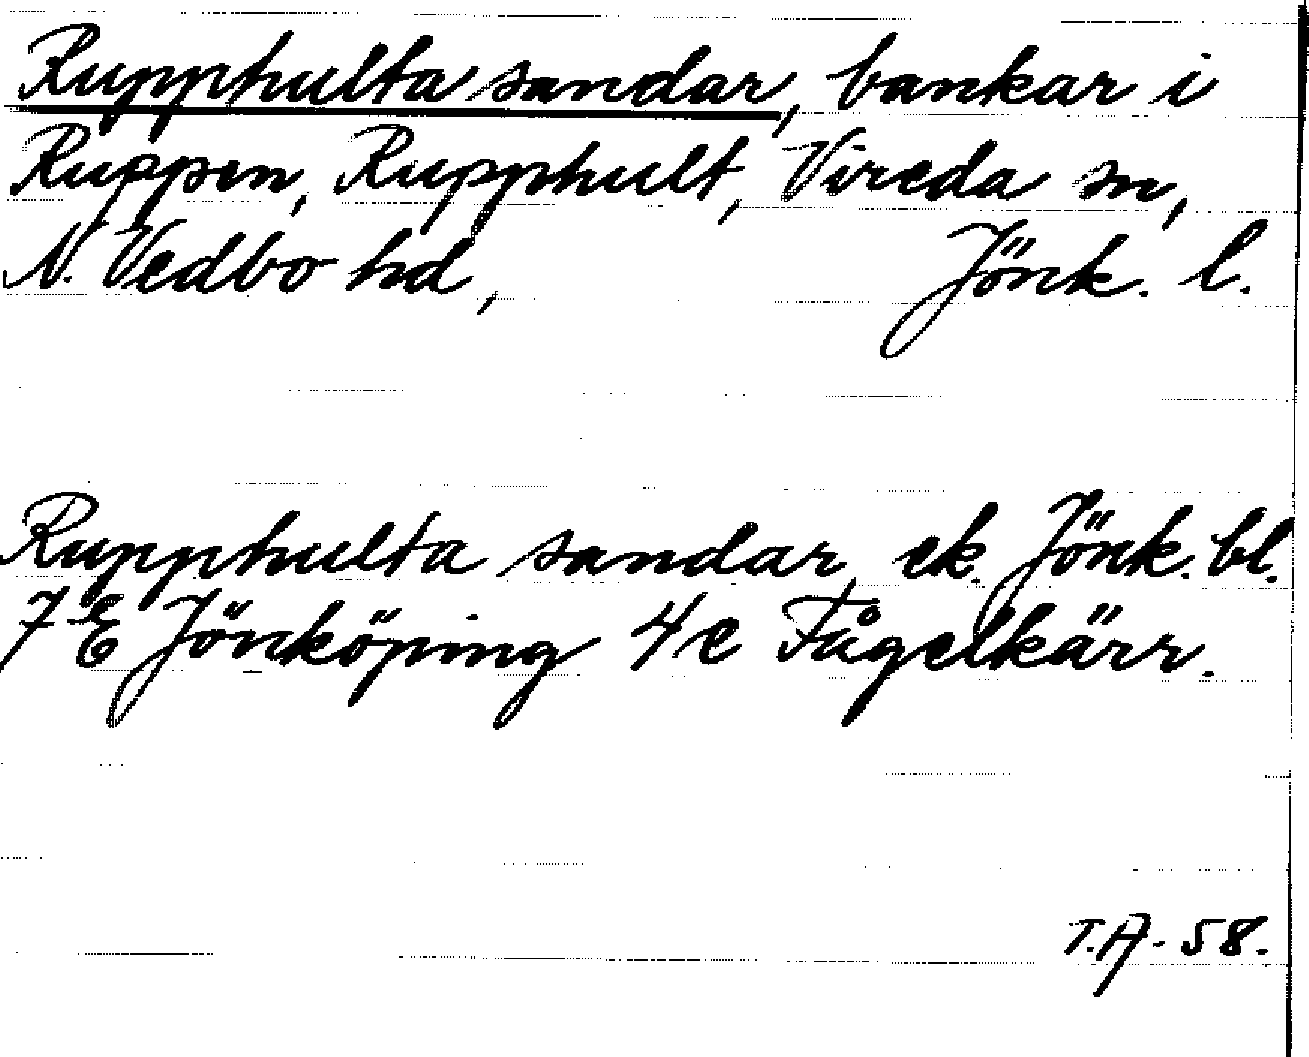 Rupphulta sandar, bankar i
Ruppen, Rupphult, Vireda sn,
N. Vedbo hd, Jönk. l.
Rupphulta sandar, ek. Jönk. bl.
7 E Jönköping 4 e Fågelkärr.
T.A- 58.